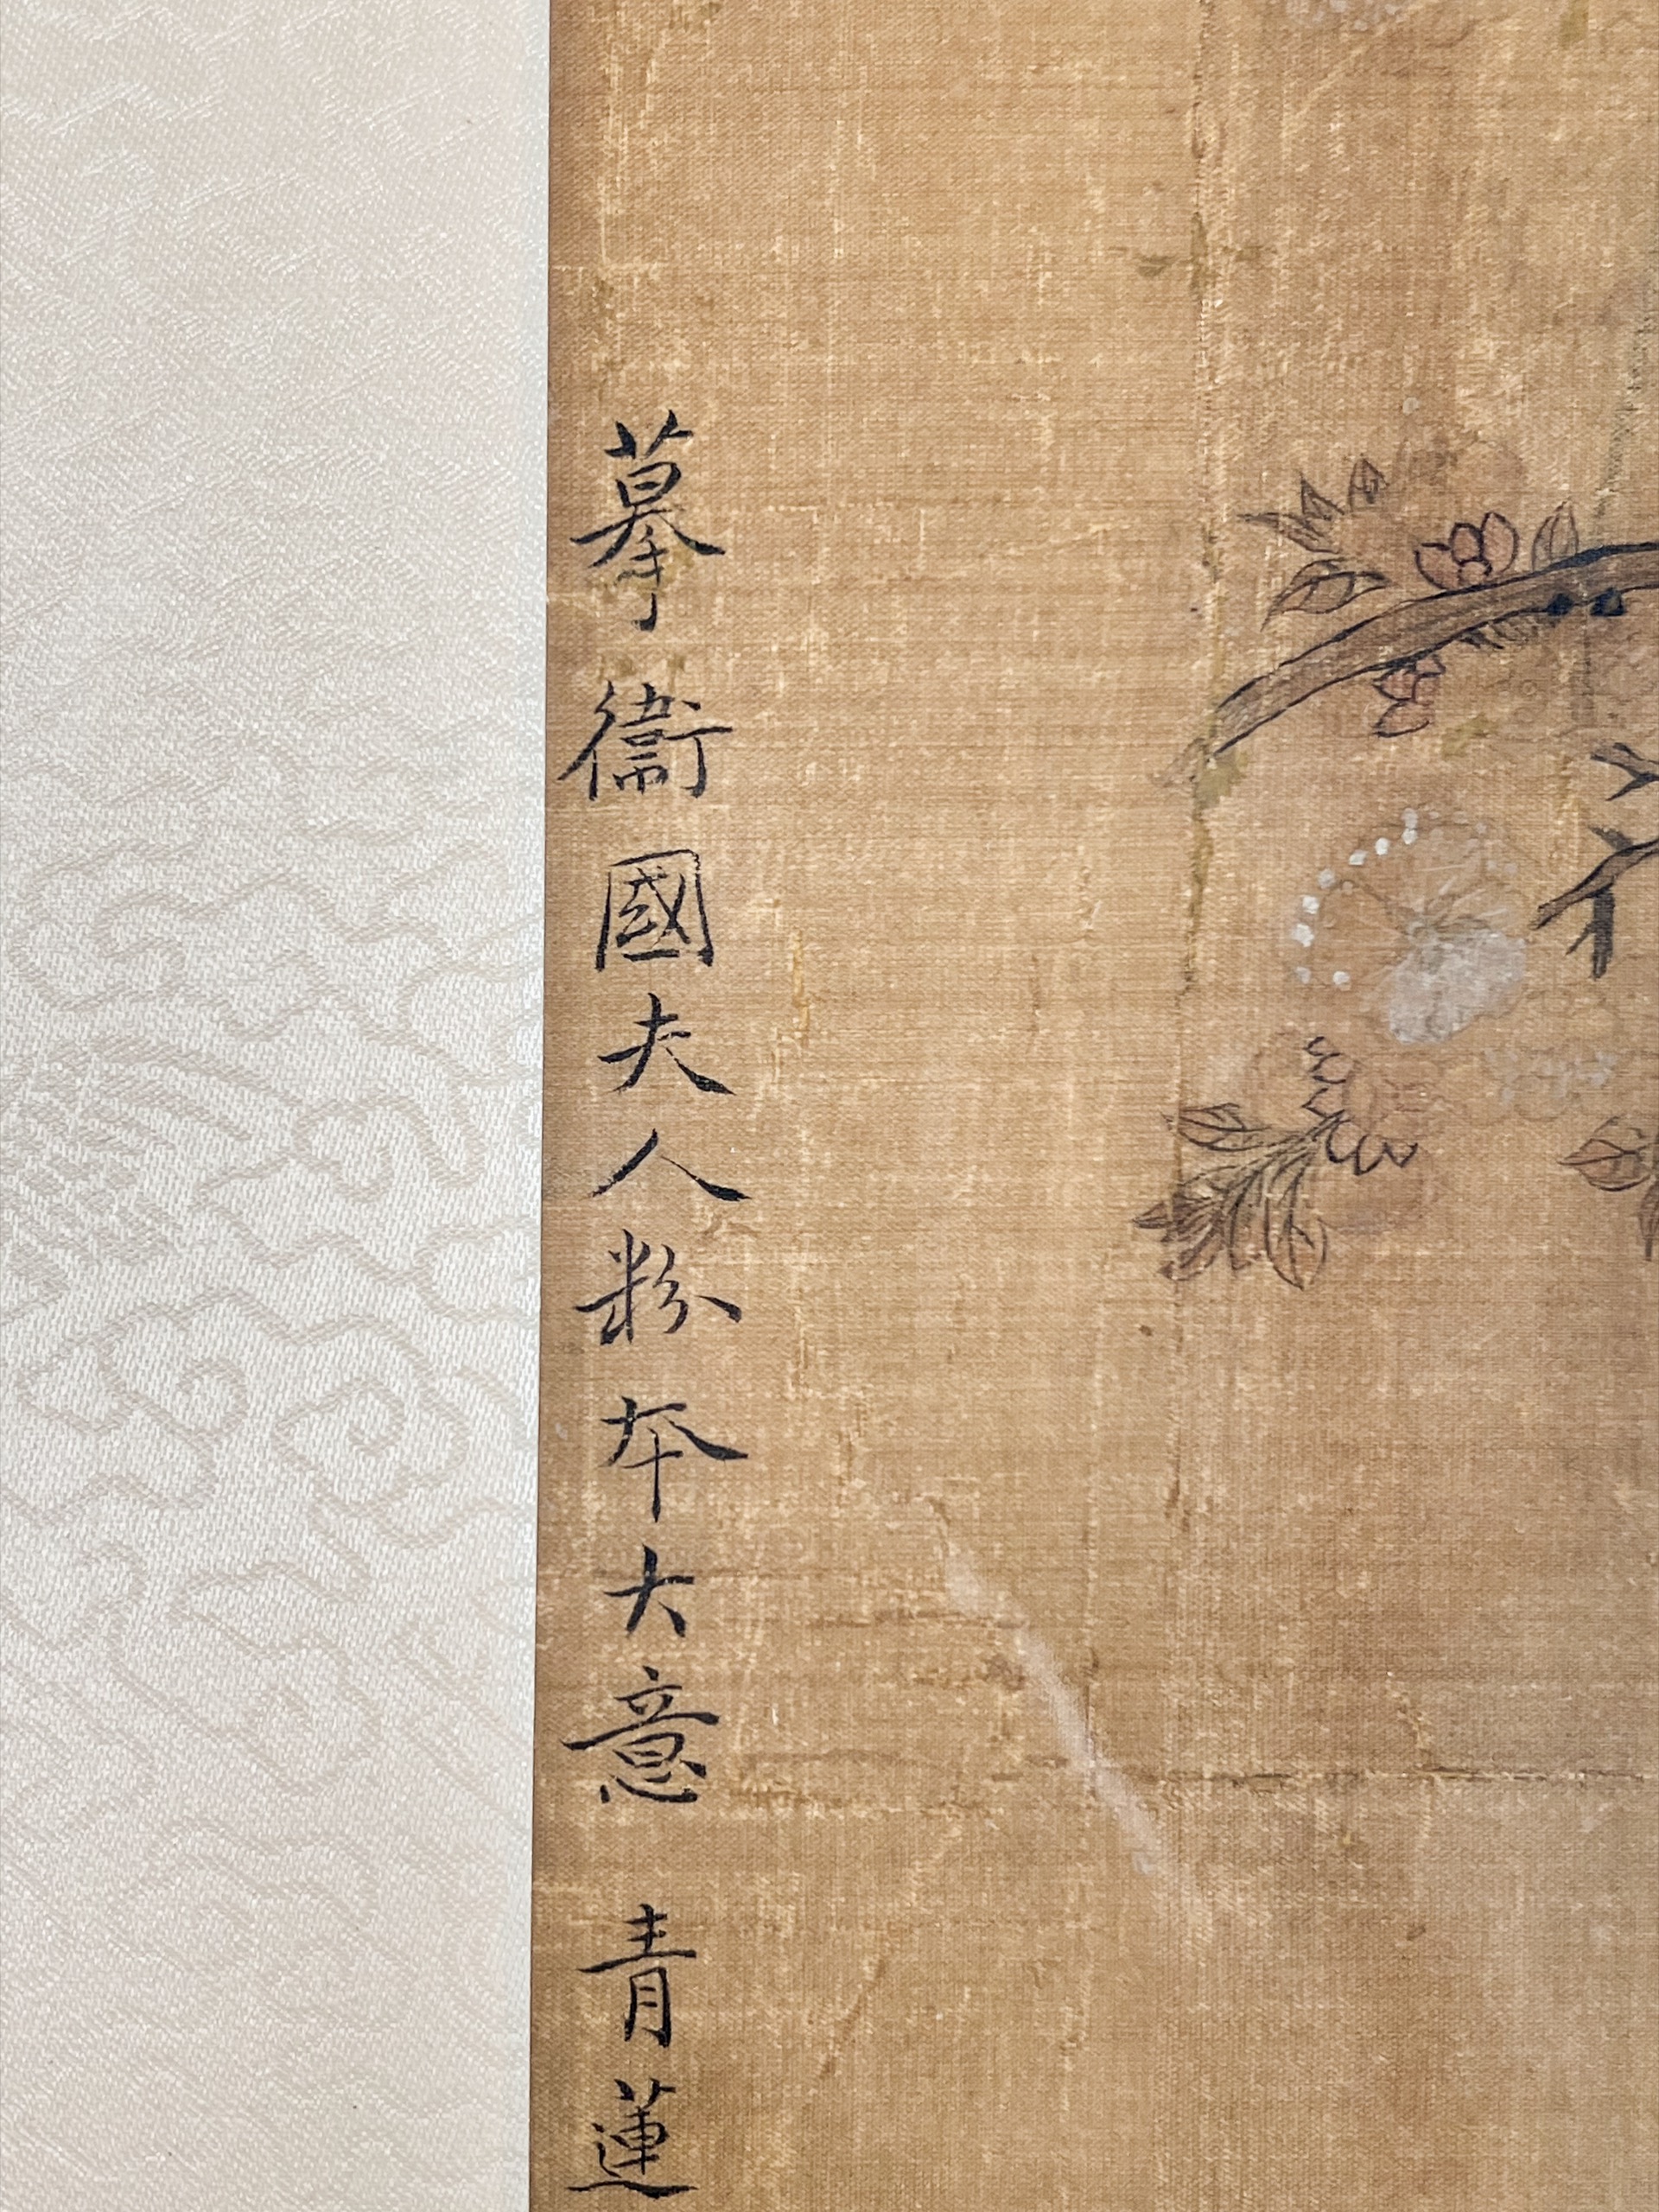 摹衞國夫人粉本大意 青蓮